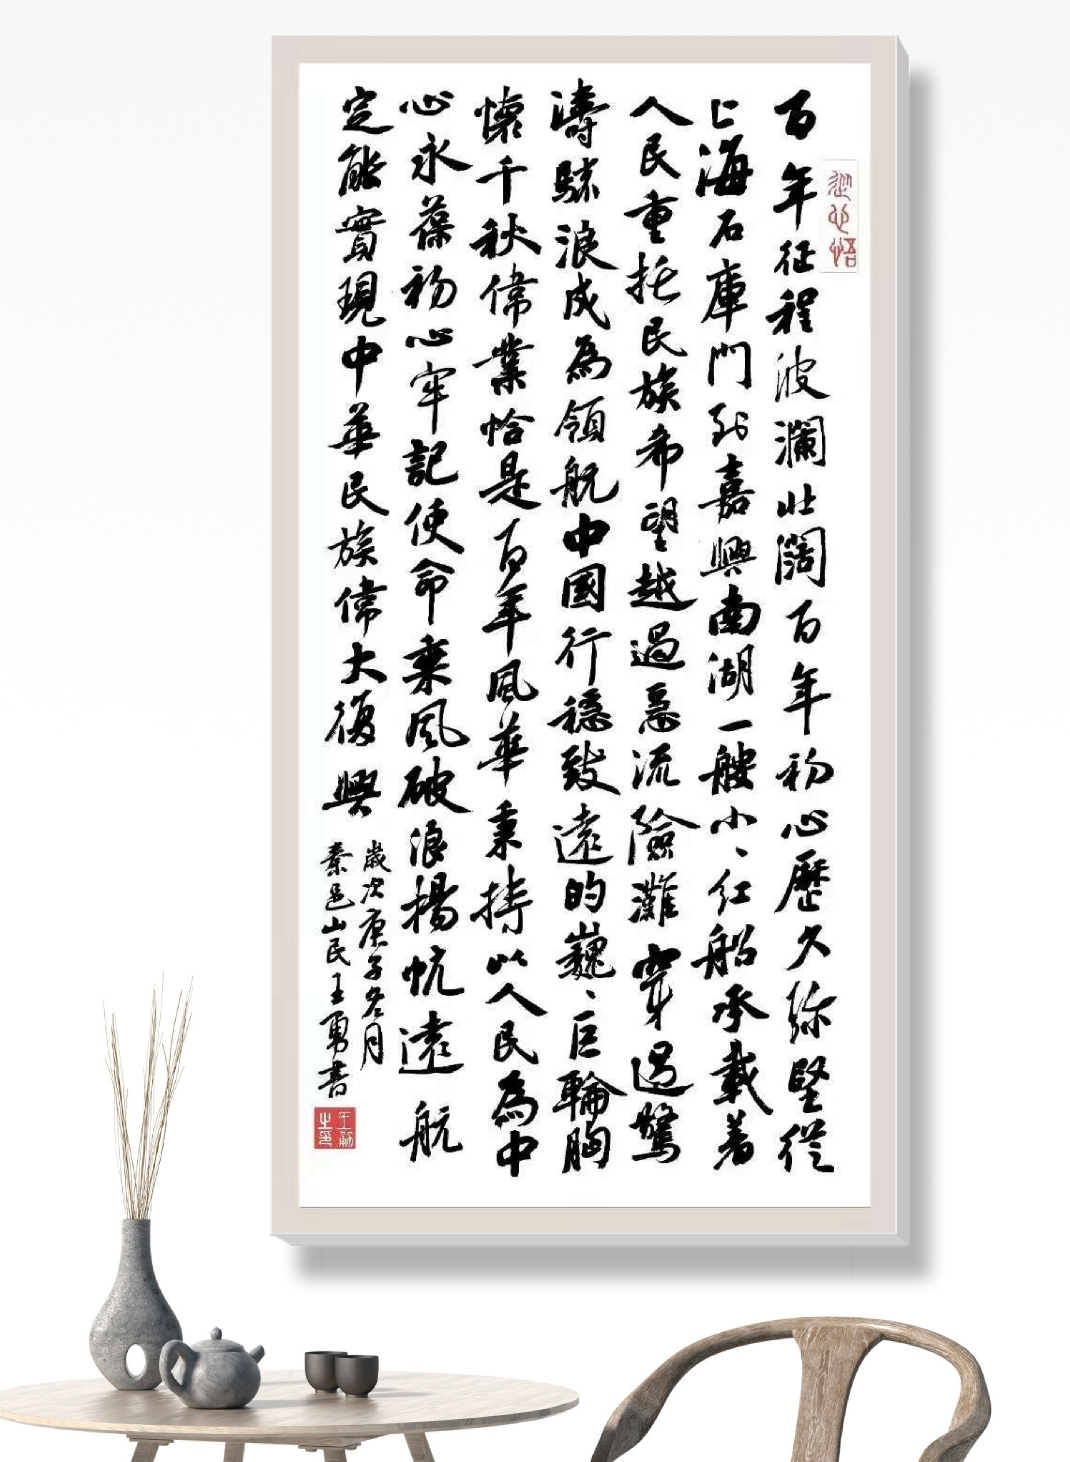 百年征程波瀾壯闊百年初心歷久弥堅從
上海石庫門到嘉興南湖一艘小小紅船承載着
人民重托民族希望越過惡流險灘穿過驚
濤駭浪成為領航中國行穩致遠的巍巍巨輪胸
懷千秋偉業恰是百年風華秉持以人民為中
心永葆初心牢記使命乘風破浪揚帆遠航
定能實現中華民族偉大復興
歲次庚子冬月
秦邑山民王勇書
王勇之印